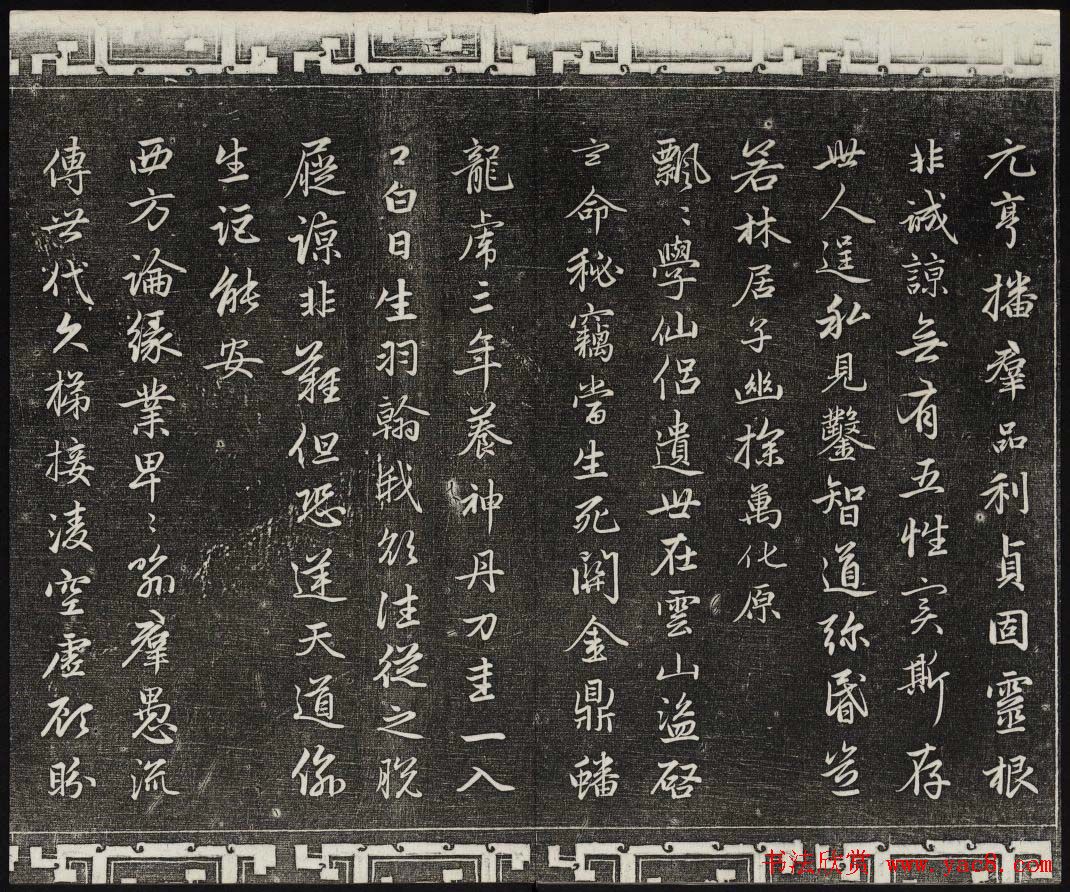 元亨播羣品利貞固靈根
非誠諒无有五性实斯存
世人逞私見鑿智道弥昏豈
若林居子幽探萬化原
飄〻學仙侶遺世在雲山盜啓
玄命秘竊當生死關金鼎蟠
龍虎三年養神丹刀圭一入
口白日生羽翰我欲往從之脫
屣諒非難但恐逆天道偷
生詎能安
西方論緣業卑〻喻羣愚流
傳世代久梯接凌空虛顧盼
书法欣赏 www.yac8.com